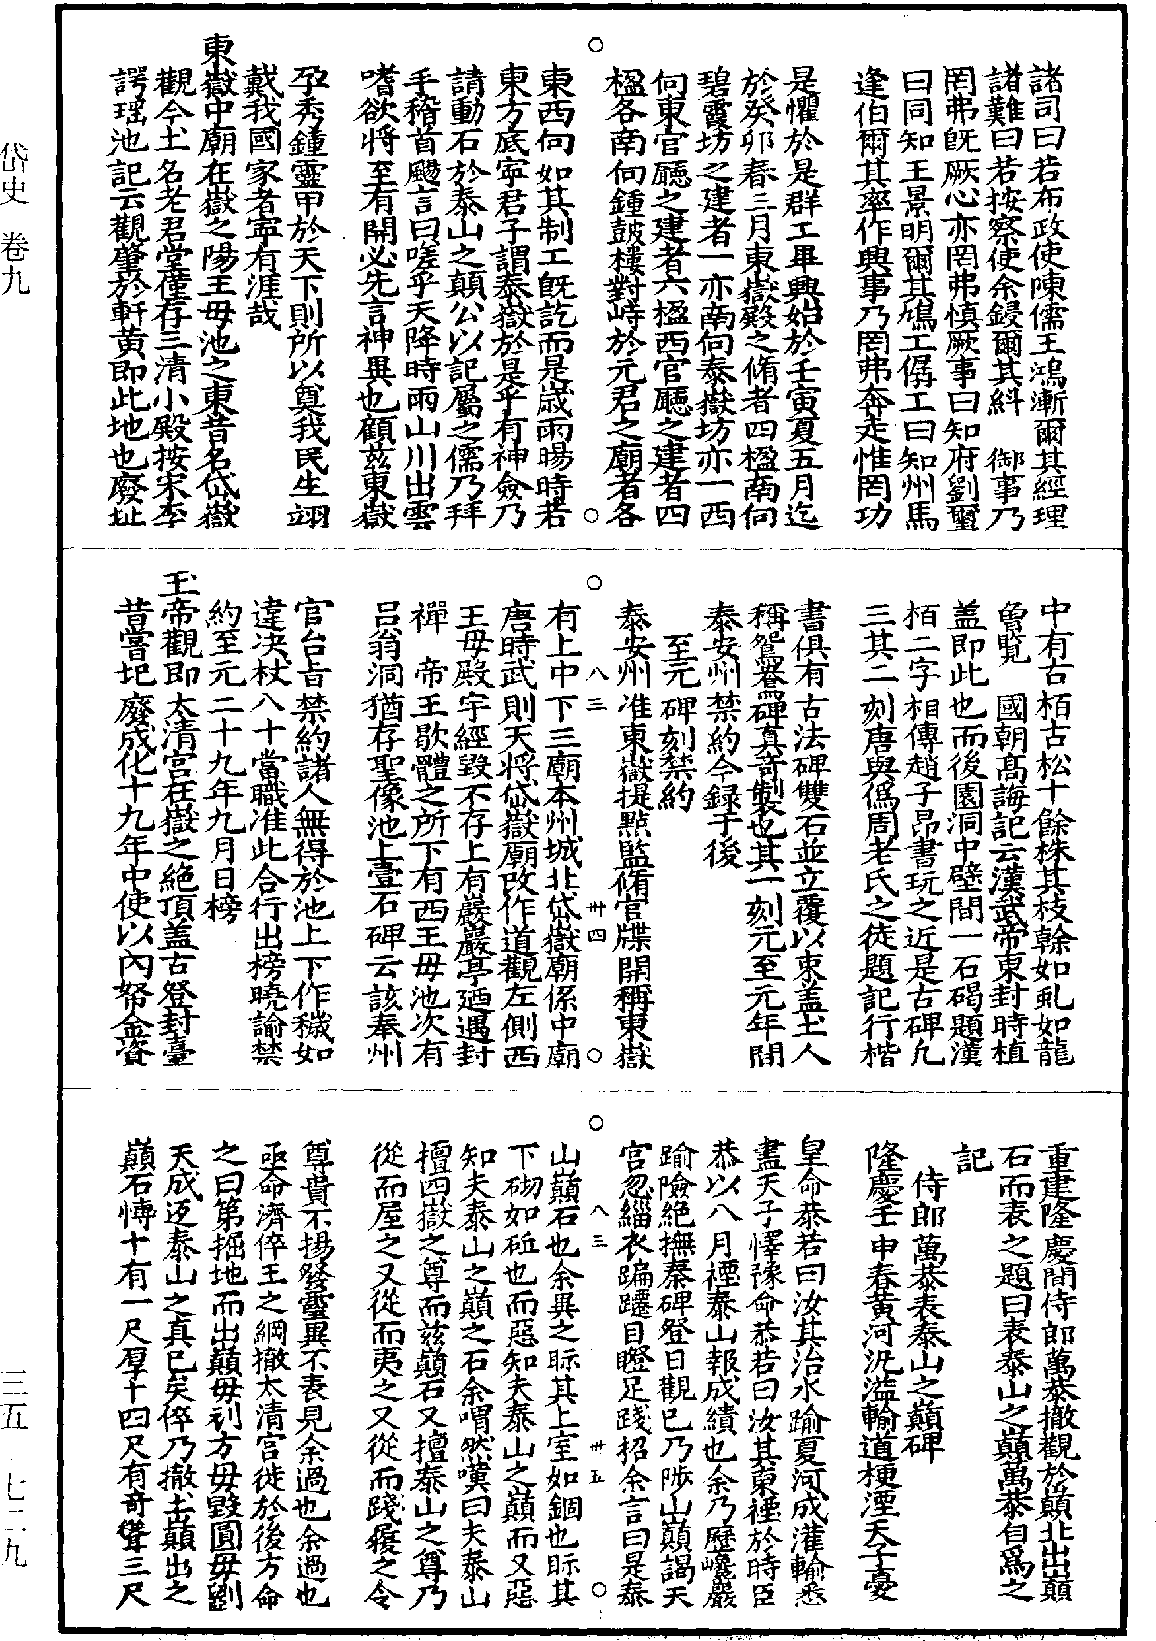 岱史 卷九
諸司曰若布政使陳儒王鴻漸爾其經理
諸難曰若按察使余鍰爾其糾 御事乃
罔弗旣厥心亦罔弗慎厥事曰知府劉璽
曰同知王景明爾其鳩工僝工曰知州馬
逢伯爾其率作興事乃罔弗奔走惟罔功
是懼於是群工畢興始於壬寅夏五月迄
於癸卯春三月東嶽殿之脩者四楹南向
碧霞坊之建者一亦南向泰嶽坊亦一西
向東官廳之建者六楹西官廳之建者四
楹各南向鍾鼓樓對峙於元君之廟者各
東西向如其制工旣訖而是歲雨暘時若
東方底寜君子謂泰嶽於是乎有神僉乃
請勒石於泰山之顛公以記屬之儒乃拜
手稽首颺言曰嗟乎天降時雨山川出雲
嗜欲將至有開必先言神異也顧玆東嶽
孕秀鍾靈甲於天下則所以奠我民生翊
戴我國家者寜有涯哉
東嶽中廟在嶽之陽王母池之東昔名岱嶽
觀今土名老君堂僅存三清小殿按宋李
諤瑤池記云觀肇於軒黃即此地也廢址
中有古栢古松十餘株其枝榦如虬如龍
曾覧 國朝高誨記云漢武帝東封時植
盖即此也而後園洞中壁間一石碣題漢
栢二字相傳趙子昂書玩之近是古碑凡
三其二刻唐與僞周老氏之徒題記行楷
書俱有古法碑雙石並立覆以束盖土人
稱鴛鴦碑真奇製也其一刻元至元年間
泰安州禁約今録于後
至元碑刻禁約
泰安州准東嶽提點監脩官牒開稱東嶽
八三
卅四
有上中下三廟本州城北岱嶽廟係中廟
唐時武則天將岱嶽廟改作道觀左側西
王母殿宇經毀不存上有巖巖亭廼遇封
禪 帝王歇體之所下有西王母池次有
吕翁洞猶存聖像池上壹石碑云該奉州
官台旨禁約諸人無得於池上下作穢如
違决杖八十當職准此合行出榜曉諭禁
約至元二十九年九月日榜
玉帝觀即太清宫在嶽之絶頂盖古登封臺
昔甞圯廢成化十九年中使以內帑金資
重建隆慶間侍郎萬恭撤觀於巔北出巔
石而表之題曰表泰山之巔萬恭自爲之
記
侍郎萬恭表泰山之巔碑
隆慶壬申春黃河汎溢輸道梗湮天子憂
皇命恭若曰汝其治水踰夏河成灌輸悉
盡天子懌豫命恭若曰汝其東禋於時臣
恭以八月禋泰山報成績也余乃歷巉巖
踰險絶撫秦碑登日觀已乃陟山巔謁天
宫忽緇衣蹁躚目瞪足踐招余言曰是泰
八三
卅五
山巔石也余異之眎其上室如錮也眎其
下砌如砥也而惡知夫泰山之巔而又惡
知夫泰山之巔之石余喟然嘆曰夫泰山
擅四嶽之尊而兹巔石又擅泰山之尊乃
從而屋之又從而夷之又從而踐履之令
尊貴不揚發靈異不表見余過也余過也
亟命濟倅王之綱撤太清宫徙於後方命
之曰第掘地而出巔毋刓方毋毀圓毋斵
天成返泰山之真已矣倅乃撤土巔出之
巔石慱十有一尺厚十四尺有奇聳三尺
三五·七二九